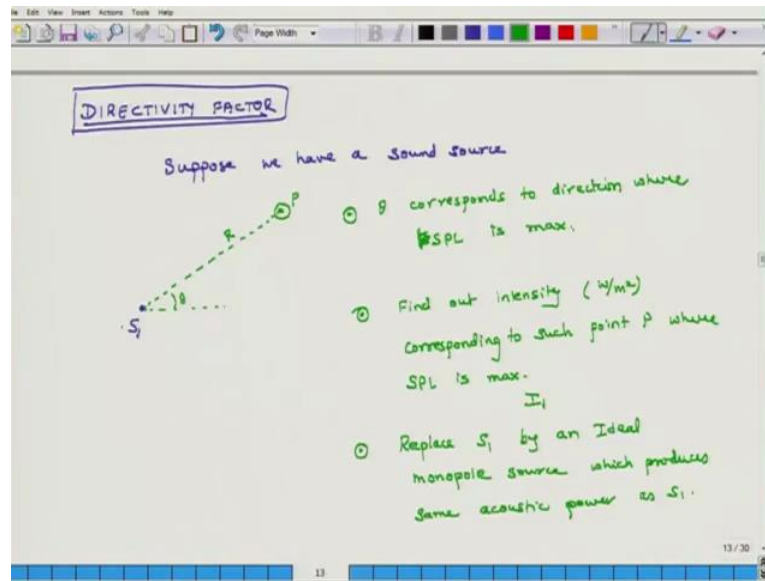 Edit View Insert Actions Tools Help
Page Width
DIRECTIVITY FACTOR
Suppose we have a sound source
P
R
θ
S1
θ corresponds to direction where
SPL is max.
Find out intensity (W/m²)
corresponding to such point P where
SPL is max.
I1
Replace S1 by an Ideal
monopole source which produces
same acoustic power as S1.
13 / 30
13